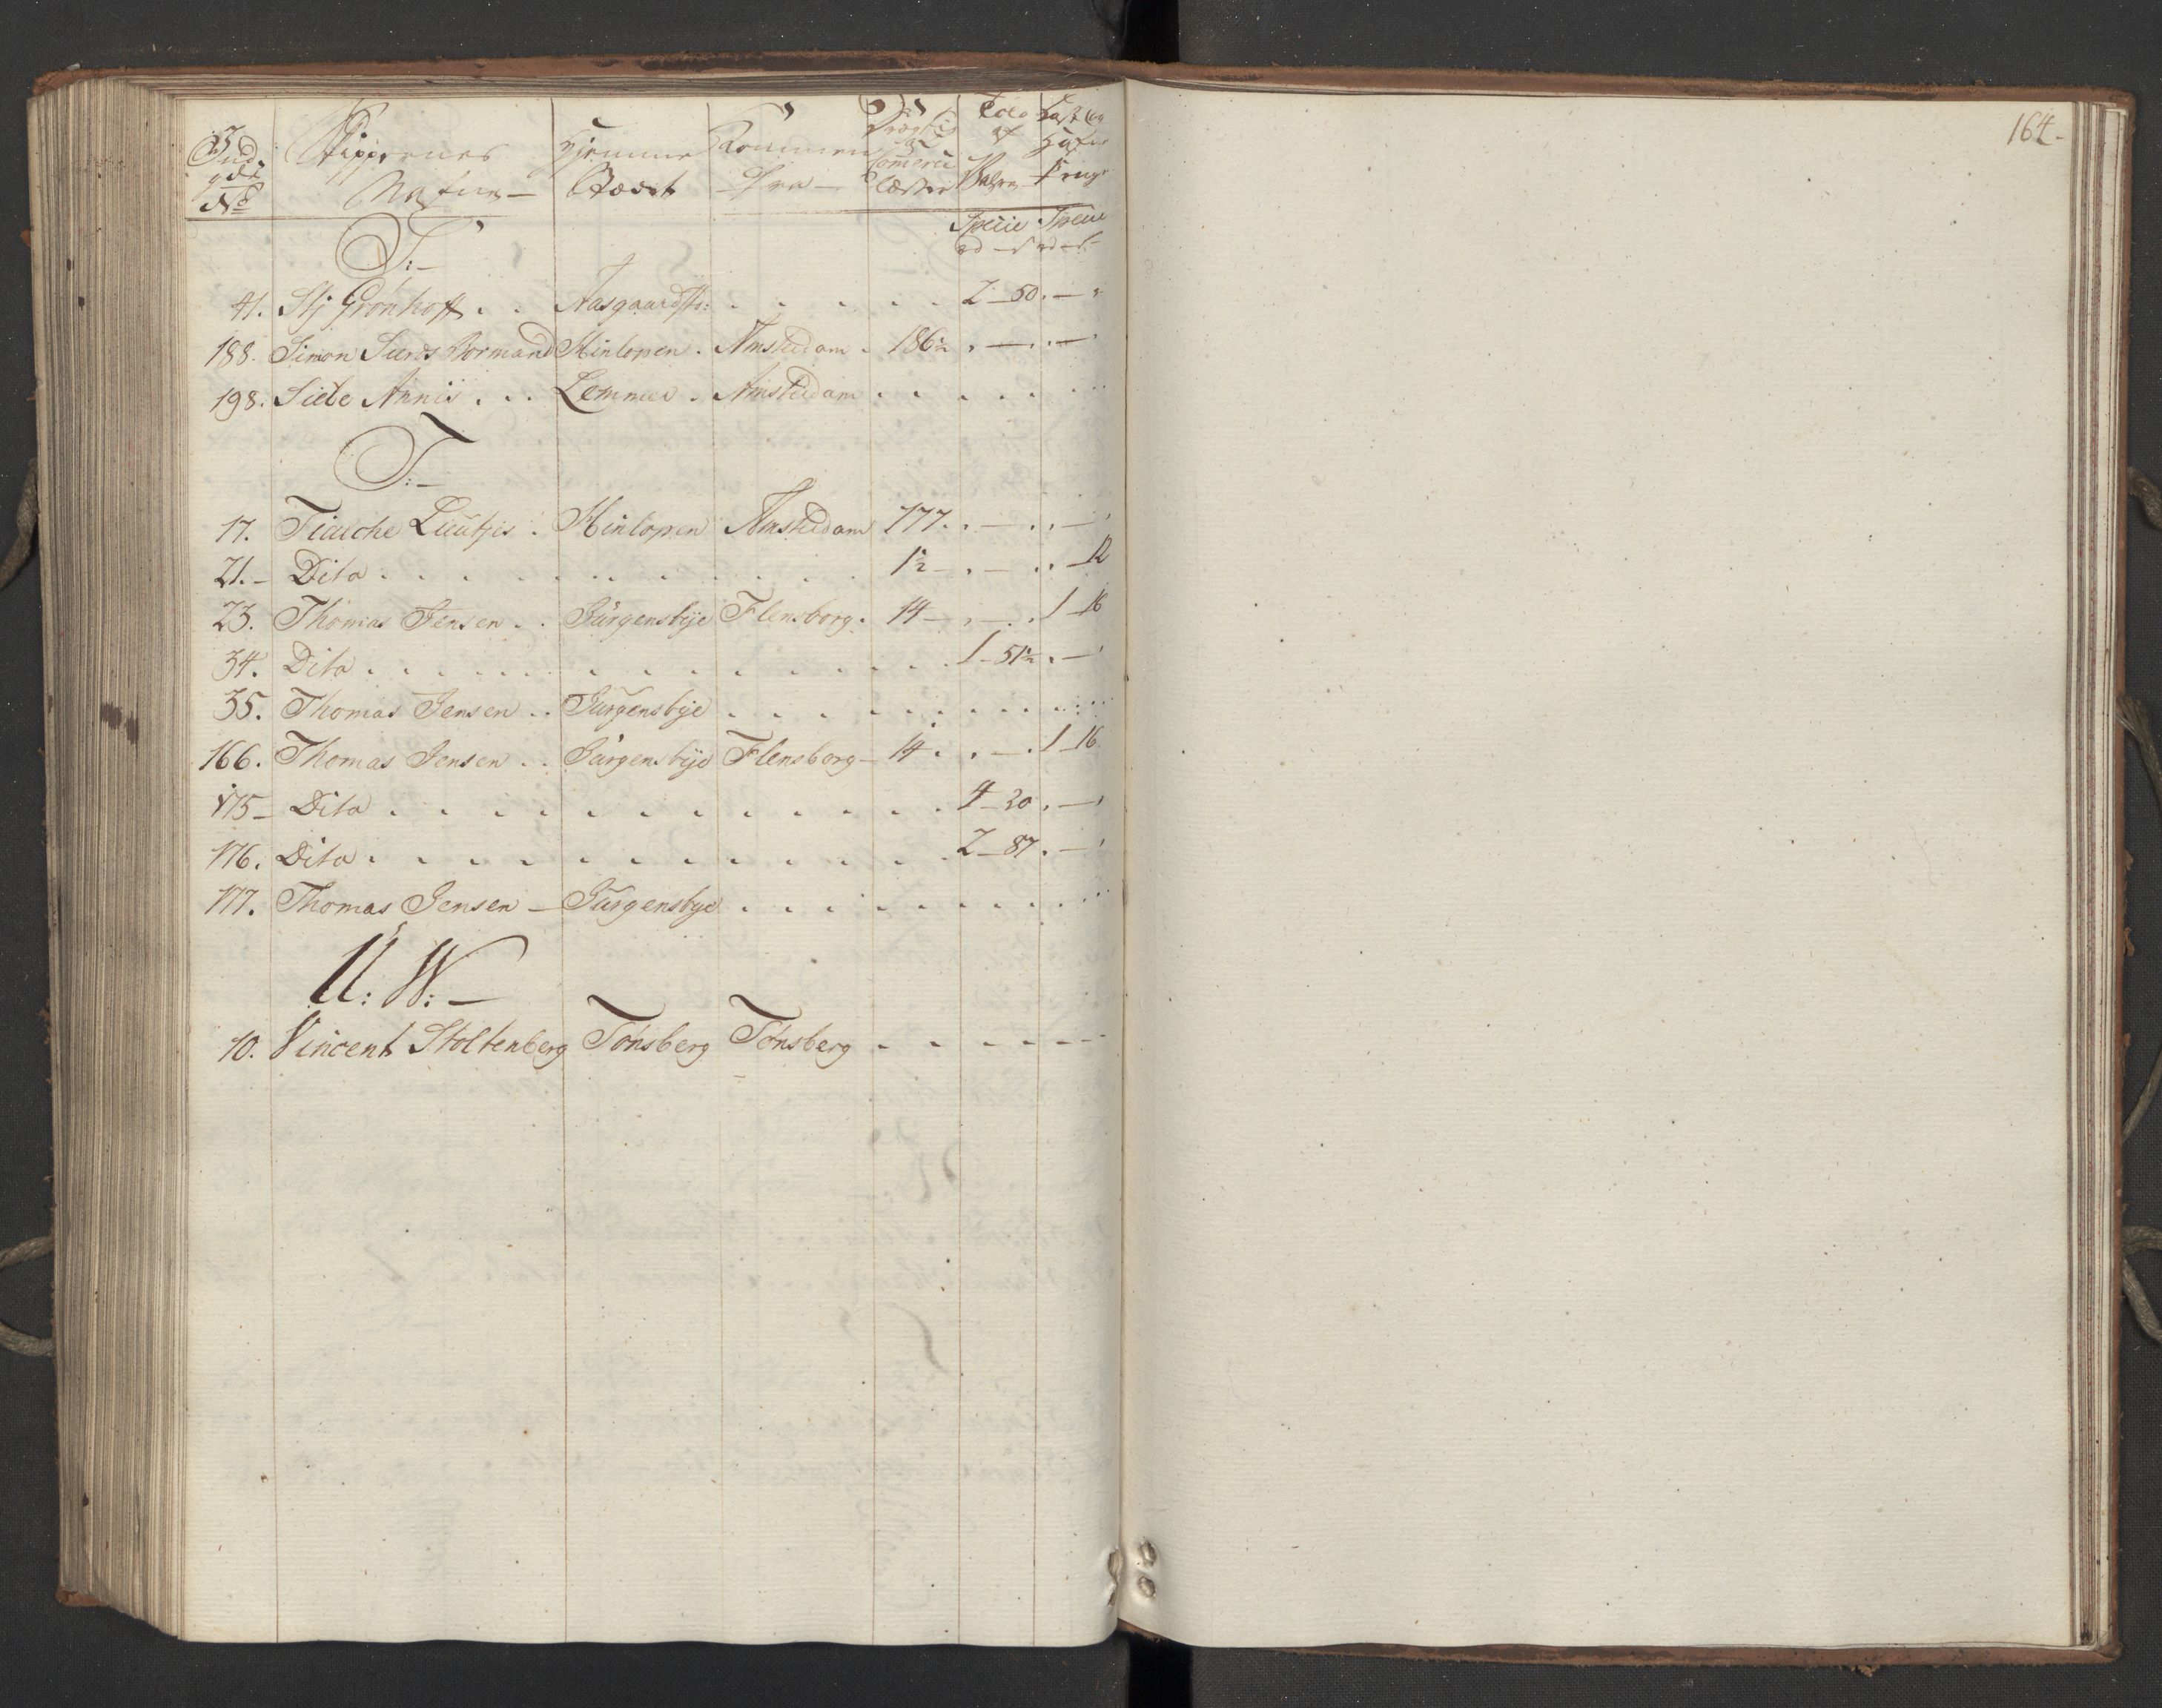 164.
Skippernes Navne — Hjemme Stædet Kommen Fra — Dræg⸗ tig Comerce Læster Told af Vahre
Specie Specie
S:—
41. Stj Grönhoff . . Aasgaardstr: . . . . . 2_50. — "
188. Simon Suurds Bormand Hinlopen . Amsterdam . 186½ . — . . —
198. Siebe Annis . . . Lemmer . Amsterdam . . . . . . .
T:—
17. Tiaiche Luutjes . Hinlopen Amsterdam 177 . . — . . —
21.– Dito . . . . . . . . . . . . 1½ – . — . . — 12
23. Thomas Jensen . . Jürgensbye Flensborg . 14 — . — . 1_16
34. Dito . . . . . . . . . . . . 1_51½ . —
35. Thomas Jensen . . Jürgensbye . . . . . . . . . .
166. Thomas Jensen . . Jürgensbye Flensborg — 14 . . — . 1_16
175– Dito . . . . . . . . . . . . 4_20 . —
176. Dito . . . . . . . . . . . . 2_87 . —
177. Thomas Jensen — Jürgensbye . . . . . . . . . .
U: W:—
10. Vincent Stoltenberg Tönsberg Tönsberg . . . . . .